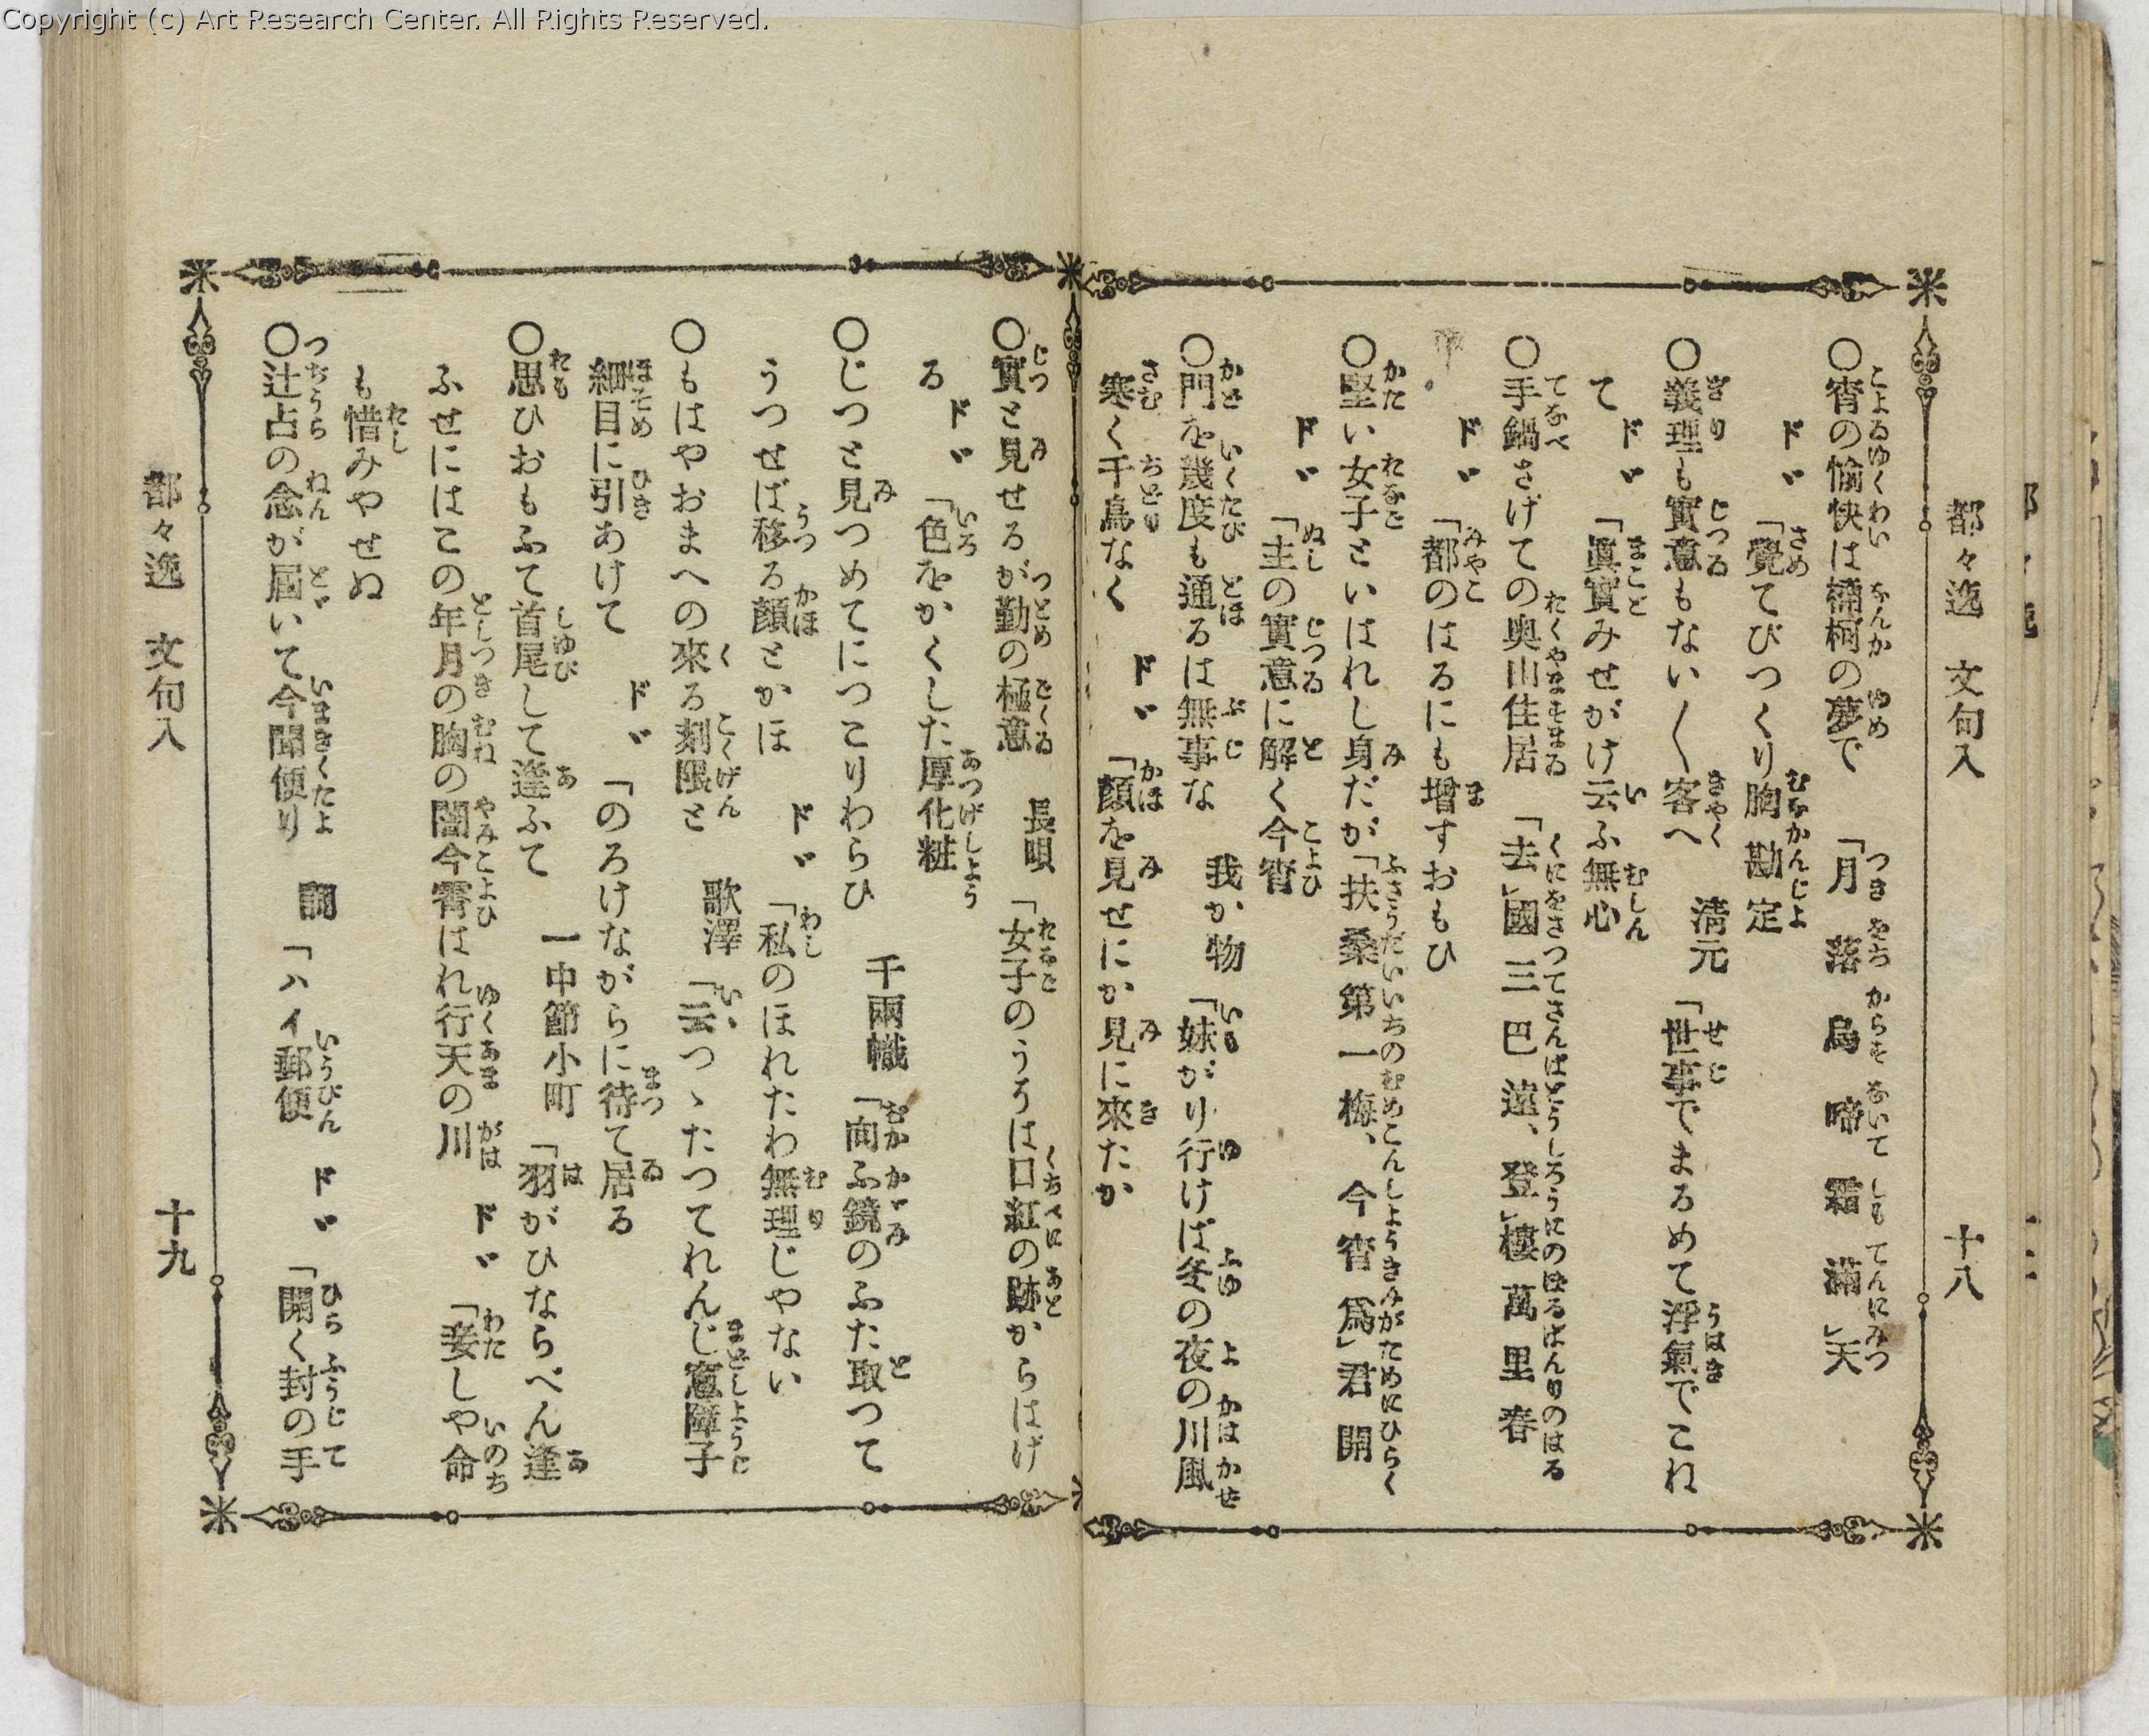 Copyright (c) Art Research Center. All Rights Reserved.
都々逸　文句入　十八
〇宵の愉快は楠柯の夢で　「月落烏啼霜滿」天
ド〻　「覺てびつくり胸勘定
〇義理も實意もない〱客へ　淸元　「世事でまるめて浮氣でこね
て　ド〻　「眞實みせがけ云ふ無心
〇手鍋さげての奥山住居　「去」國三巴遠、登」樓萬里春
ド〻　「都のはるにも增すおもひ
〇堅い女子といはれし身だが「扶桑第一梅、今宵爲」君開
ド〻　「主の實意に解く今宵
〇門を幾度も通るは無事な　我か物　「妹がり行けば冬の夜の川風
寒く千鳥なく　ド〻　「顏を見せにか見に來たか
〇實と見せるが勤の極意　長唄　「女子のうろは口紅の跡からはげ
る　ド〻　「色をかくした厚化粧
〇じつと見つめてにつこりわらひ　千兩幟　「向ふ鏡のふた取つて
うつせば移る顏とかほ　ド〻　「私のほれたわ無理じやない
〇もはやおまへの來る刻限と　歌澤　「云つゝたつてれんじ窓障子
細目に引あけて　ド〻　「のろけながらに待て居る
〇思ひおもふて首尾して逢ふて　一中節小町　「羽がひならべん逢
ふせにはこの年月の胸の闇今宵はれ行天の川　ド〻　「妾しや命
も惜みやせぬ
〇辻占の念が屆いて今聞便り　詞　「ハイ郵便　ド〻　「開く封の手
都々逸　文句入　十九